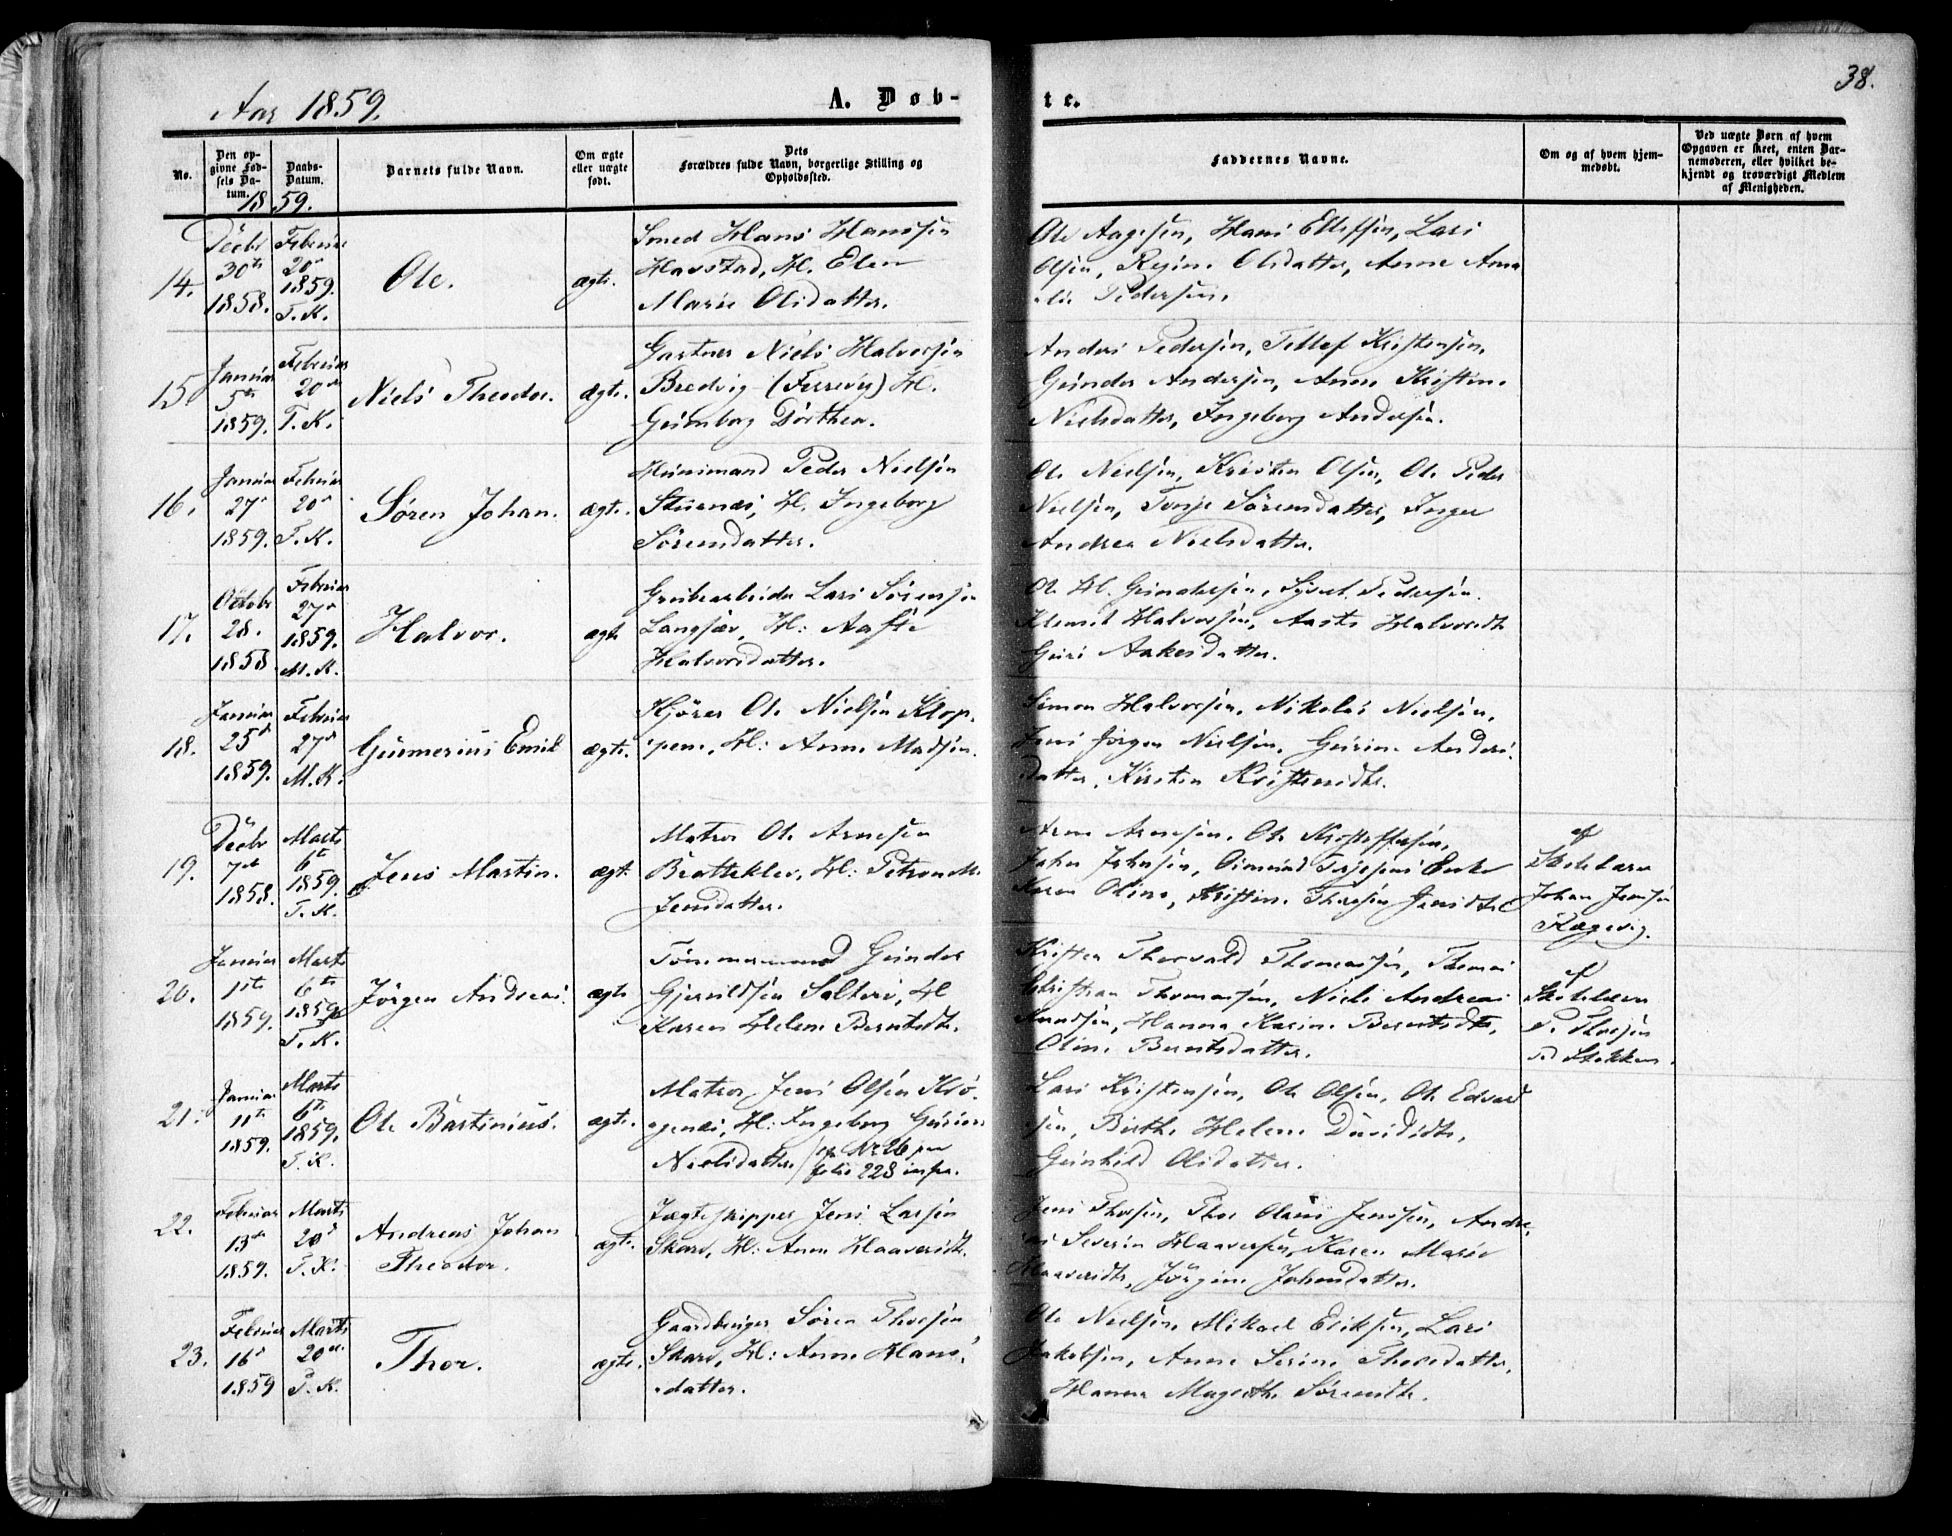 Aar 1859.
A. Døb-
te.
38.
No.
Den op-
givne Fød-
sels Da-
tum.
Daabs-
Datum.
Barnets fulde Navn.
Om ægte
eller uægte
født.
Dets
Forældres fulde Navn, borgerlige Stilling og
Opholdssted.
Faddernes Navne.
Om og af hvem hjem-
medøbt.
Ved uægte Børn af hvem
Opgaven er skeet, enten Bar-
nemoderen, eller hvilket be-
kjendt og troværdigt Medlem
af Menigheden.
1859.
14.
Decbr
30te
1858.
Februar
20de
1859.
T. K.
Ole.
ægte.
Smed Hans Hanssen
Havstad, H. Elen
Marie Olsdatter.
Ole Aagesen, Hans Ellefsen, Lars
Olsen, Regine Olsdatter, Anne Ama
lie Pedersen.
15.
Januar
5te
1859.
Februar
20de
T. K.
Niels Theodor.
ægte.
Gartner Niels Halvorsen
Bredvig (Ferrevig) H.
Gunborg Dorthea.
Anders Pedersen, Tellef Kristensen,
Gunder Andersen, Anne Kristine
Nielsdatter, Ingeborg Andersen.
16.
Januar
27de
1859.
Februar
20de
T. K.
Søren Johan.
ægte.
Huusmand Peder Nielsen
Stuenæs, H. Ingeborg
Sørensdatter.
Ole Nielsen, Kristen Olsen, Ole Peder
Nielsen, Tonje Sørensdatter, Inger
Andrea Nielsdatter.
17.
Octobr
28.
1858.
Februar
27de
1859.
M. K.
Halvor.
ægte
Grubearbeider Lars Sørensen
Langsæv, H: Aaste
Halvorsdatter.
Ole H. Gundersen, Syvert Pedersen.
Klemet Halvorsen, Aaste Halvorsdtr
Guri Aakesdatter.
18.
Januar
25de
1859.
Februar
27de
M. K.
Gunnerius Emil
ægte.
Kjører Ole Nielsen Klop-
pene, H: Anne Madsen.
Simon Halvorsen, Nikolai Nielsen,
Jens Jørgen Nielsen, Gurine Anders
datter, Kirsten Kristensdtr.
19.
Decbr
7de
1858.
Marts
6te
1859.
T. K.
Jens Martin.
ægte.
Matros Ole Arnesen
Bratteklev, H: Petronelle
Jensdatter.
Arne Arnesen, Ole Kristoffersen,
John Johnsen, Osmund Terjesens Enke
Karen Oline, Kristine Thorsen Jensdtr
af
Skolelærer
Johan Jensen
20.
Januar
1ste
1859.
Marts
6te
1859
T. K.
Jørgen Andreas.
ægte
Tømmermand Gunder
Gjeruldsen Salterø, H
Karen Helene Berntsdtr.
Kristen Thorvald Thomassen, Thomas
Christian Thomassen, Niels Andreas
Knudsen, Hanna Karine Berntsdtr,
Oline Berntsdatter.
af
Skolelærer
21.
Januar
11te
1859.
Marts
6te
1859.
T. K.
Ole Bastinius.
ægte.
Matros Jens Olsen Krø-
genæs, H: Ingeborg Gurine
Nielsdatter.
Nr 26
folio 228
Lars Kristensen, Ole Olsen, Ole Edvard
sen, Birthe Helene Davidsdtr,
Gunhild Olsdatter.
22.
Februar
13de
1859.
Marts
20de
T. K.
Andreas Johan
Theodor.
ægte.
Jægteskipper Jens Larsen
Skare, H: Anne Haaversdtr.
Jens Thorsen, Thor Olaus Jenssen, Andre
as Severin Haaversen, Karen Marie
Haaversdtr, Jørgine Johnsdatter.
23.
Februar
16de
1859
Marts
20de
T. K.
Thor.
ægte.
Gaardbruger Søren Thorsen
Skare, H: Anne Hans-
datter.
Ole Nielsen, Mikael Eriksen, Lars
Jakobsen, Anne Serine Thorsdatter,
Hanna Magrethe Sørensdtr.